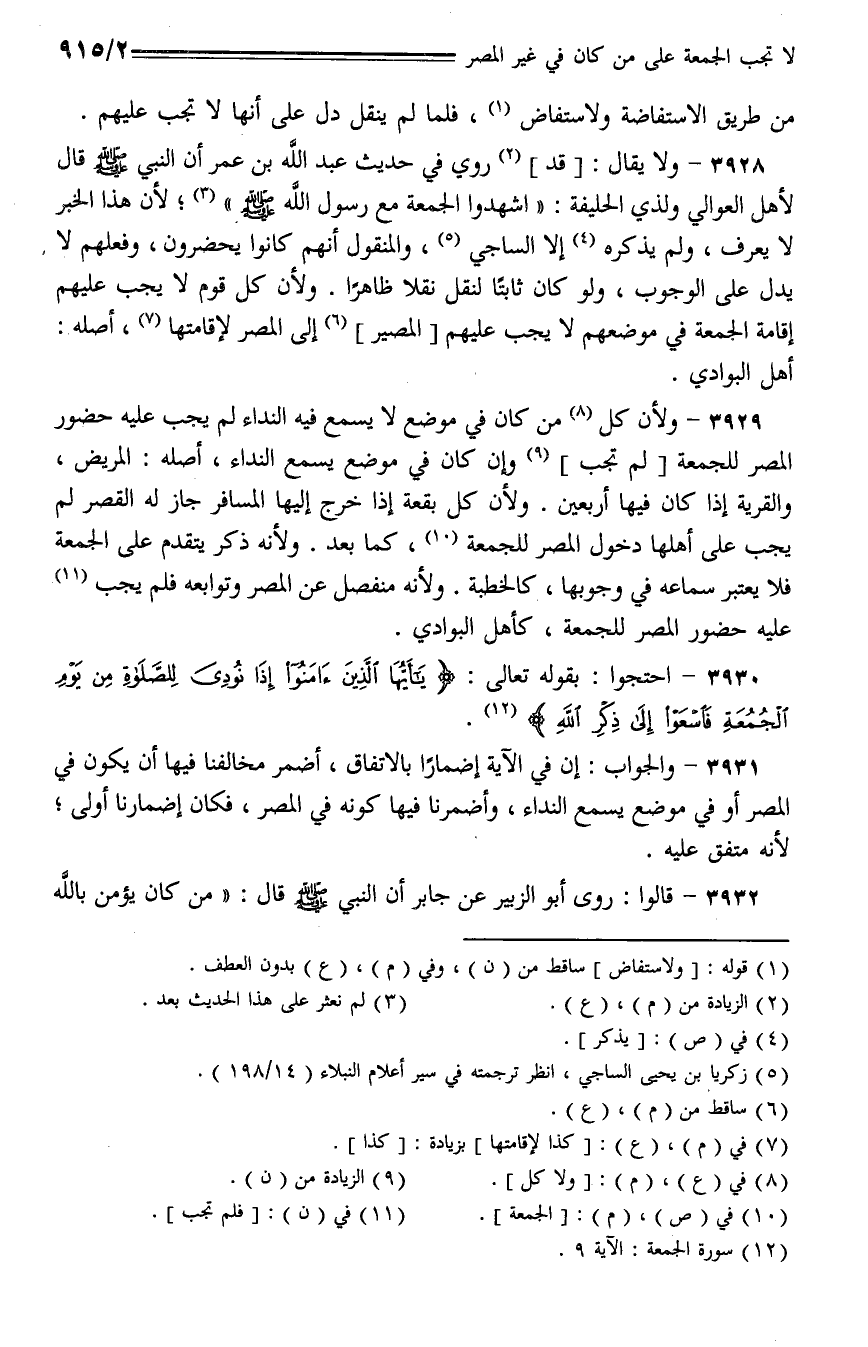 لا تجب الجمعة على من كان في غير المصر ٩١٥/٢
من طريق الاستفاضة ولاستفاض (١) ، فلما لم ينقل دل على أنها لا تجب عليهم .
٣٩٢٨ – ولا يقال : [ قد ] (٢) روي في حديث عبد اللَّه بن عمر أن النبي ﷺ قال
لأهل العوالي ولذي الحليفة : « اشهدوا الجمعة مع رسول اللَّه ﷺ » (٣) ؛ لأن هذا الخبر
لا يعرف ، ولم يذكره (٤) إلا الساجي (٥) ، والمنقول أنهم كانوا يحضرون ، وفعلهم لا
يدل على الوجوب ، ولو كان ثابتًا لنقل نقلا ظاهرًا . ولأن كل قوم لا يجب عليهم
إقامة الجمعة في موضعهم لا يجب عليهم [ المصير ] (٦) إلى المصر لإقامتها (٧) ، أصله :
أهل البوادي .
٣٩٢٩ – ولأن كل (٨) من كان في موضع لا يسمع فيه النداء لم يجب عليه حضور
المصر للجمعة [ لم تجب ] (٩) وإن كان في موضع يسمع النداء ، أصله : المريض ،
والقرية إذا كان فيها أربعين . ولأن كل بقعة إذا خرج إليها المسافر جاز له القصر لم
يجب على أهلها دخول المصر للجمعة (١٠) ، كما بعد . ولأنه ذكر يتقدم على الجمعة
فلا يعتبر سماعه في وجوبها ، كالخطبة . ولأنه منفصل عن المصر وتوابعه فلم يجب (١١)
عليه حضور المصر للجمعة ، كأهل البوادي .
٣٩٣٠ – احتجوا : بقوله تعالى : ﴿ يَٰٓأَيُّهَا ٱلَّذِينَ ءَامَنُوٓا۟ إِذَا نُودِىَ لِلصَّلَوٰةِ مِن يَوْمِ
ٱلْجُمُعَةِ فَٱسْعَوْا۟ إِلَىٰ ذِكْرِ ٱللَّهِ ﴾ (١٢) .
٣٩٣١ – والجواب : إن في الآية إضمارًا بالاتفاق ، أضمر مخالفنا فيها أن يكون في
المصر أو في موضع يسمع النداء ، وأضمرنا فيها كونه في المصر ، فكان إضمارنا أولى ؛
لأنه متفق عليه .
٣٩٣٢ – قالوا : روى أبو الزبير عن جابر أن النبي ﷺ قال : « من كان يؤمن باللَّه
(١) قوله : [ ولاستفاض ] ساقط من ( ن ) ، وفي ( م ) ، ( ع ) بدون العطف .
(٢) الزيادة من ( م ) ، ( ع ) . (٣) لم نعثر على هذا الحديث بعد .
(٤) في ( ص ) : [ يذكر ] .
(٥) زكريا بن يحيى الساجي ، انظر ترجمته في سير أعلام النبلاء ( ١٩٨/١٤ ) .
(٦) ساقط من ( م ) ، ( ع ) .
(٧) في ( م ) ، ( ع ) : [ كذا لإقامتها ] بزيادة : [ كذا ] .
(٨) في ( ع ) ، ( م ) : [ ولا كل ] . (٩) الزيادة من ( ن ) .
(١٠) في ( ص ) ، ( م ) : [ الجمعة ] . (١١) في ( ن ) : [ فلم تجب ] .
(١٢) سورة الجمعة : الآية ٩ .